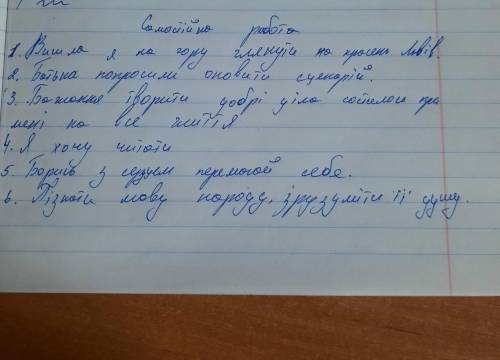 Самостійна робота
1. Вишла я на гору глянути на красень Львів.
2. Батька попросили оновити сценарій.
3. Бажання творити добрі діла осталося при
мені на все життя
4. Я хочу читати
5. Борись з серцем перемагай себе.
6. Пізнати мову народу, зрузуміти її душу.